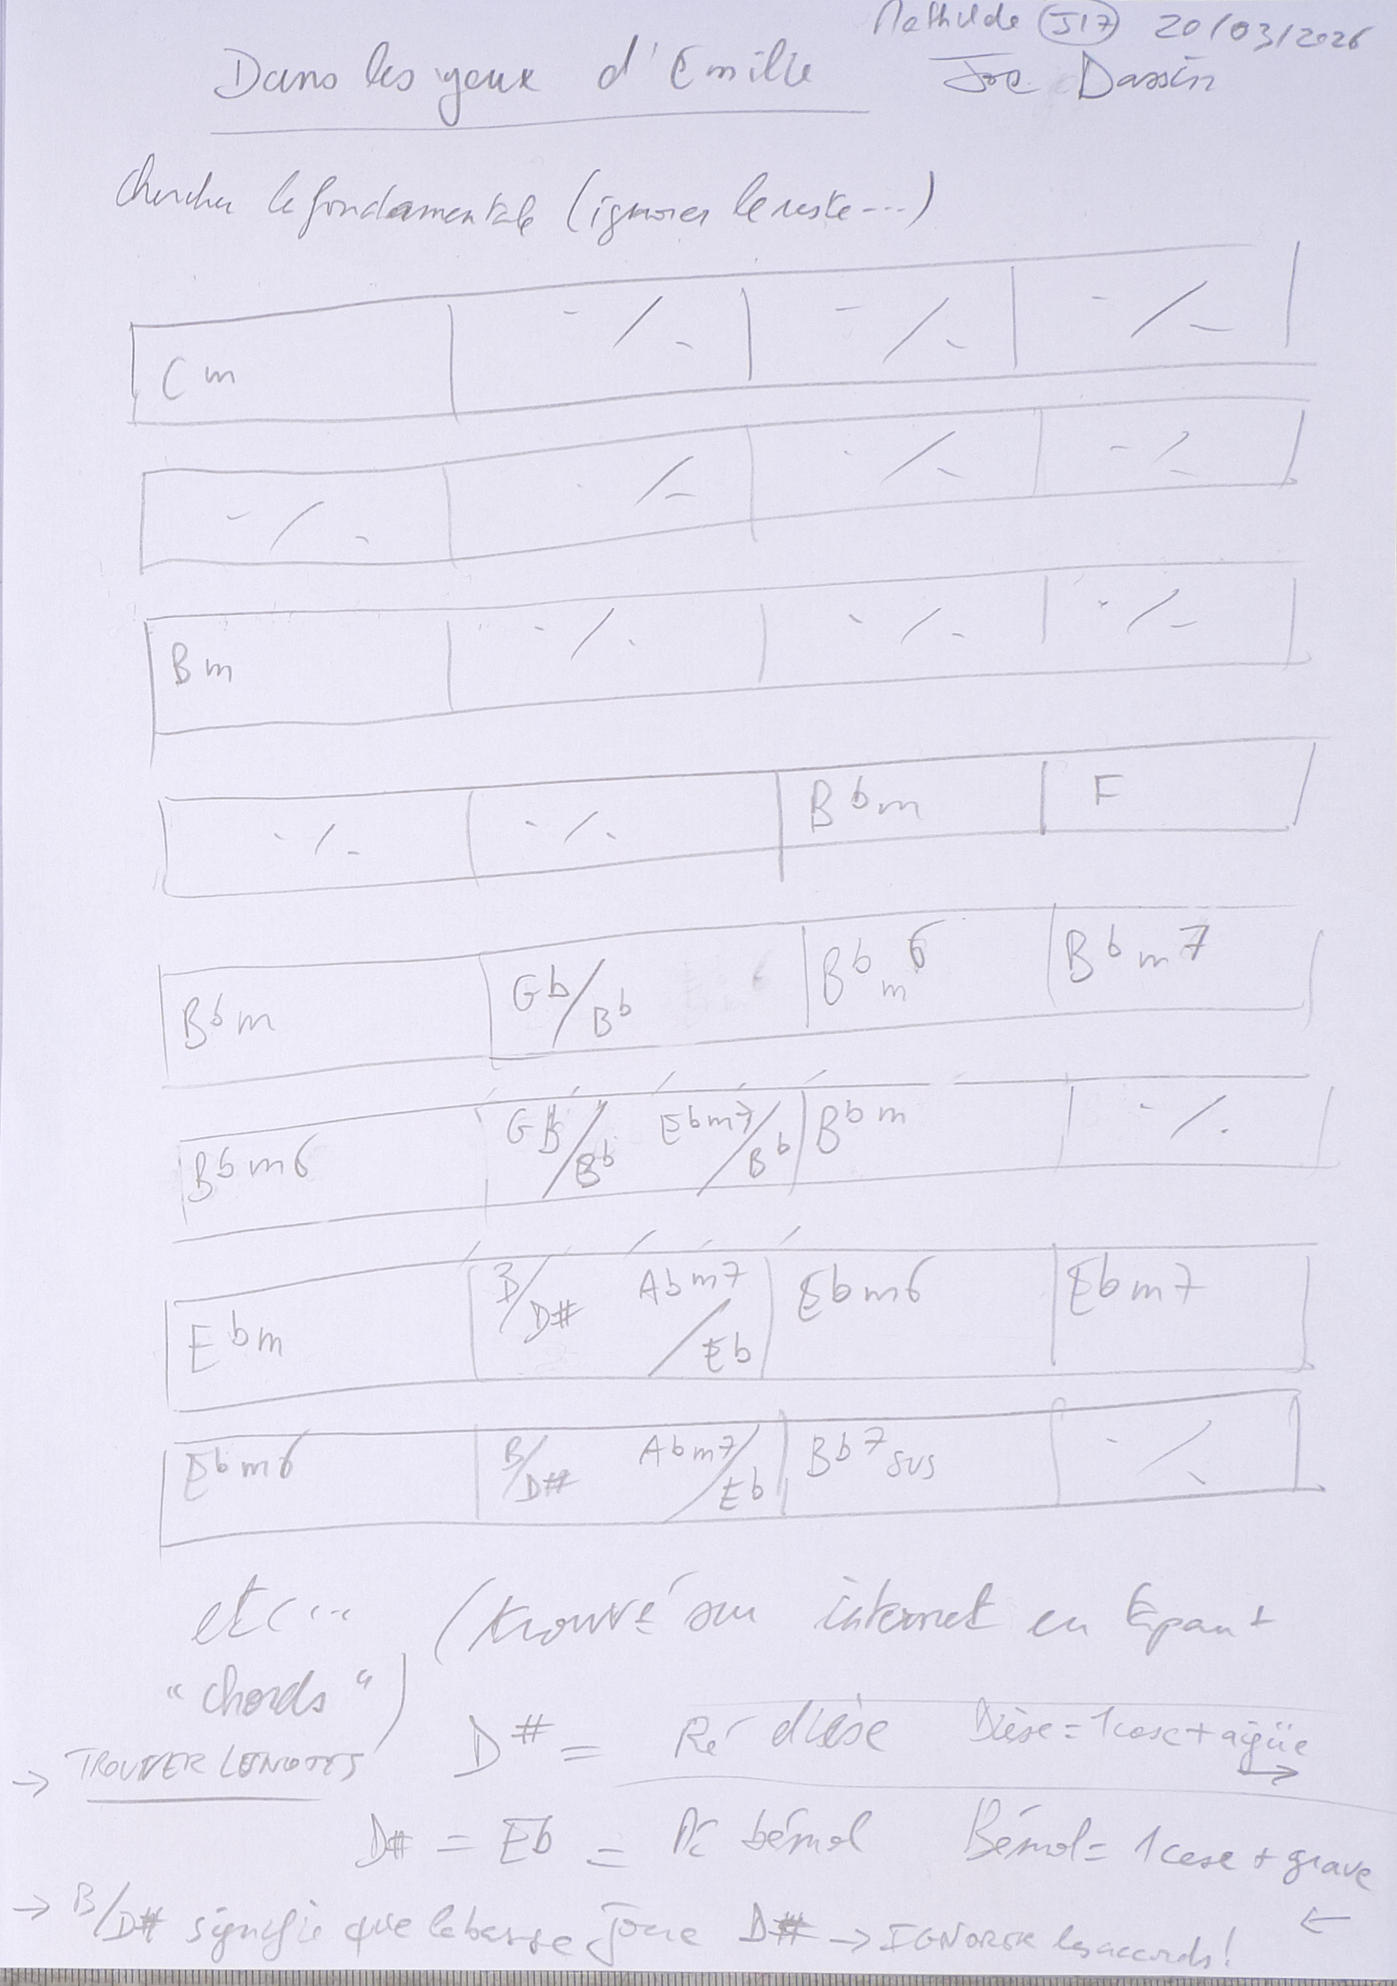 Mathilde J17 20/03/2026
Dans les yeux d'Emilie Joe Dassin
chercher la fondamentale (ignorer le reste...)
Cm | ٪ | ٪ | ٪ |
٪ | ٪ | ٪ | ٪ |
Bm | ٪ | ٪ | ٪ |
٪ | ٪ | Bbm | F |
Bbm | Gb/Bb | Bbm6 | Bbm7
Bbm6 | Gb/Bb Ebm7/Bb | Bbm | ٪ |
Ebm | B/D# Abm7/Eb | Ebm6 | Ebm7 |
Ebm6 | B/D# Abm7/Eb | Bb7sus | ٪ |
etc... (trouvé sur internet en tapant
"chords")
D# = Ré dièse Dièse = 1 case + aigüe →
→ TROUVER LES NOTES
D# = Eb = Mi bémol Bémol = 1 case + grave ←
→ B/D# signifie que la basse joue D# → IGNORER les accords!